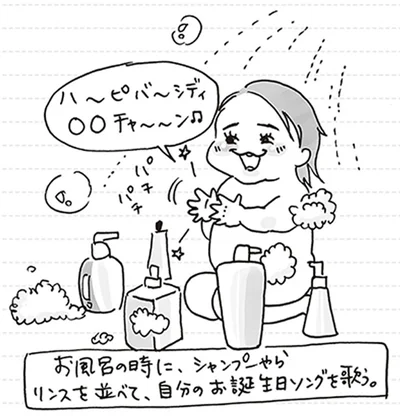 ハ〜ピバ〜シディ
〇〇チャ〜〜ン♫
パチ
パチ
お風呂の時に、シャンプーやら
リンスを並べて、自分のお誕生日ソングを歌う。